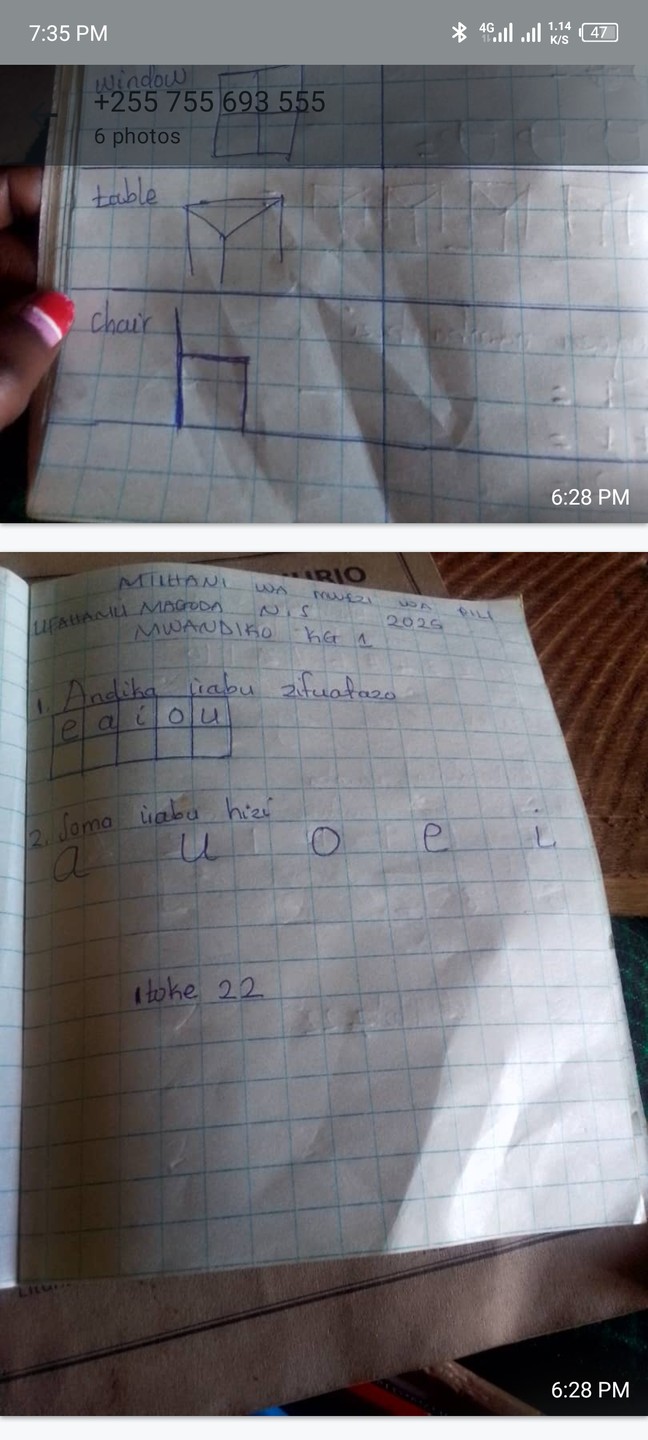 7:35 PM
4G
1.14 K/S
47
window
+255 755 693 555
6 photos
table
chair
6:28 PM
MTIHANI WA MWEZI WA PILI
UFAHAMU MAGODA N.S 2025
MWANDIKO KG 1
1. Andika irabu zifuatazo
e a i o u
2. Soma irabu hizi
a u o e i
itoke 22
6:28 PM